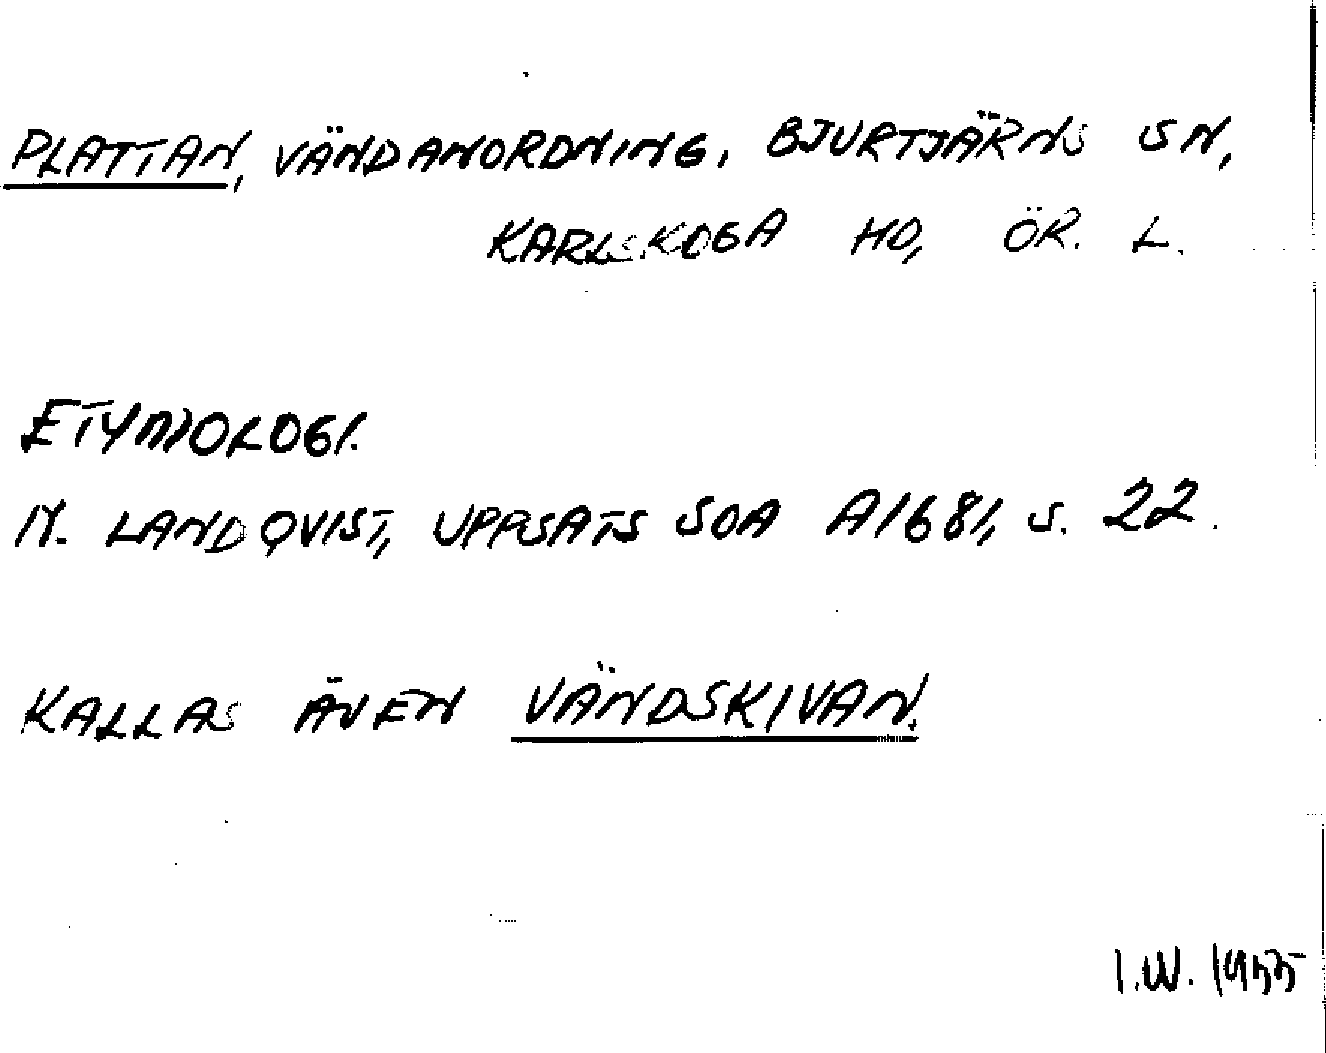 PLATTAN, VÄNDANORDNING, BJURTJÄRNS SN,
KARLSKOGA HD, ÖR. L.
ETYMOLOGI.
N. LANDQVIST, UPPSATS SOA A1681, S. 22.
KALLAS ÄVEN VÄNDSKIVAN.
I.W. 1955